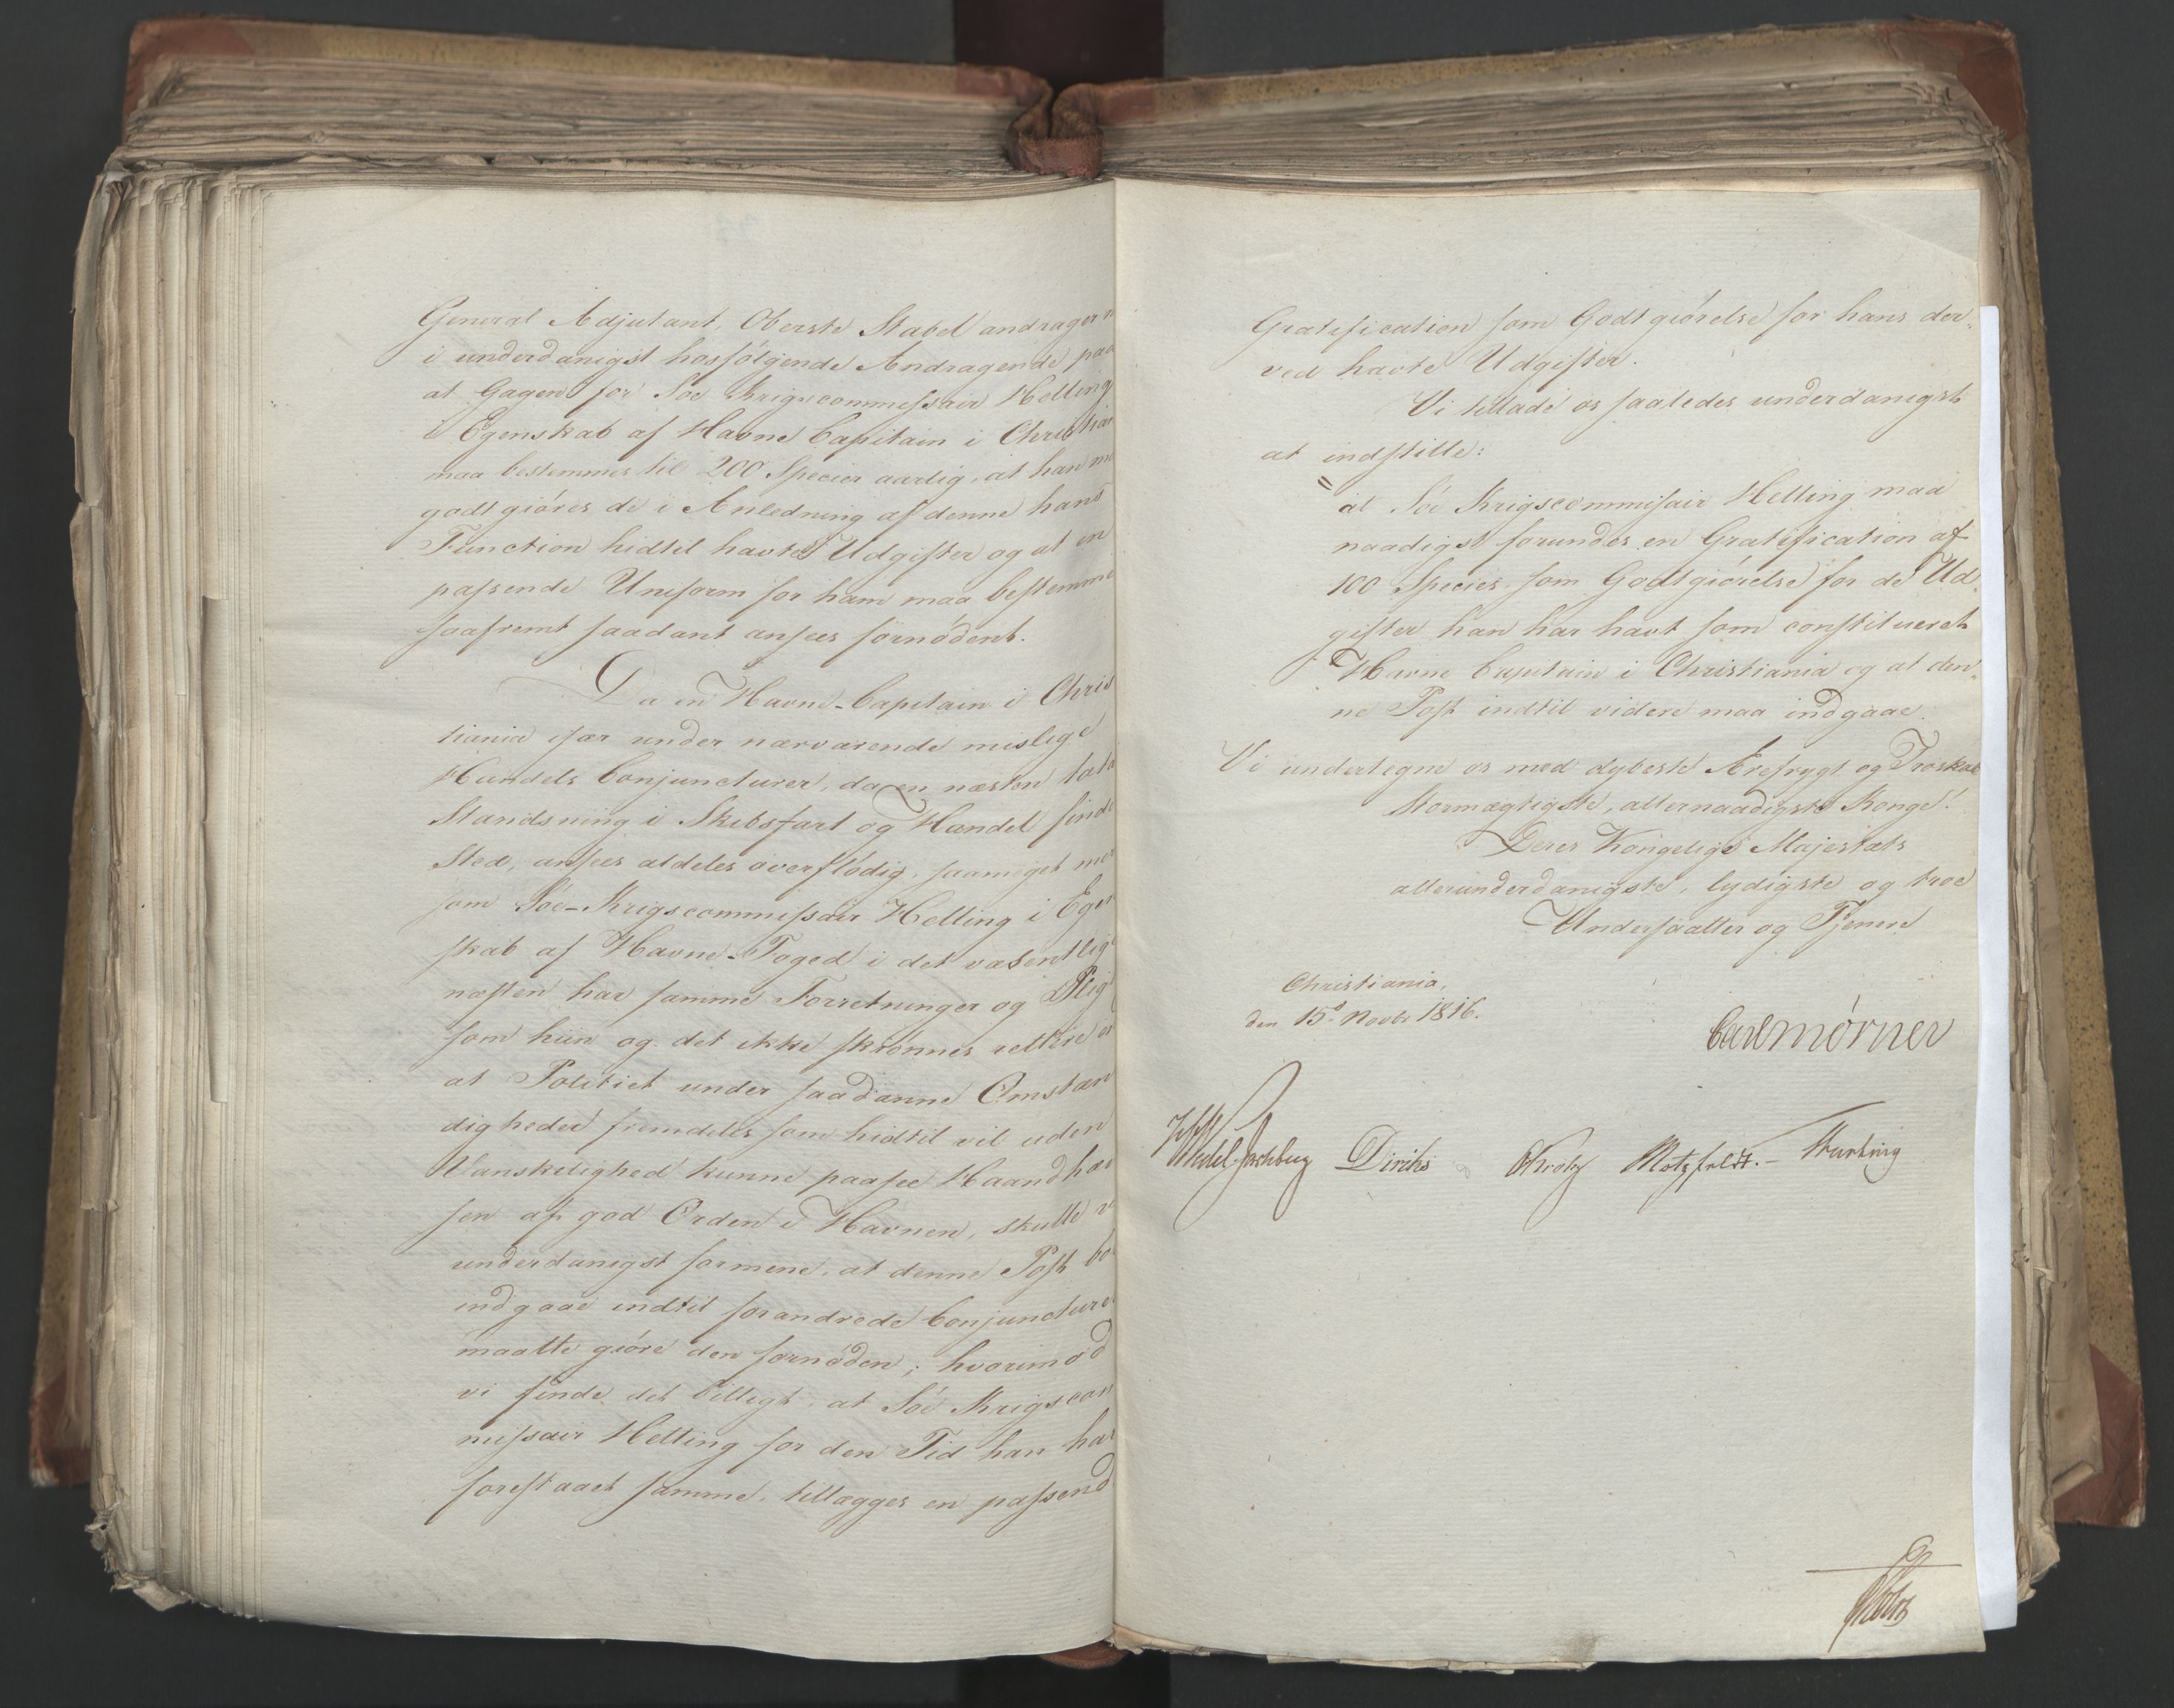 General Adjutant, Oberste Stabel andrager
i underdanigst hosfølgende Andragende paa
at Gagen for Søe Krigscommissair Helting
i Egenskab af Havne Capitain i Christian
maa bestemmes til 200 Species aarlig, at han
godtgiøres de i Anledning af denne hans
Function hidtil havte Udgifter og at en
passende Uniform for ham maa bestemme
saafremt saadant ansees fornødent.
Da en Havne-Capitain i Chris
tiania især under nærværende mislige
Handels Conjuncturer, da en næsten total
Standsning i Skibsfart og Handel finde
Sted, ansees aldeles overflødig, saameget mer
som Søe-Krigscommissair Helting i Egen
skab af Havne-Foged i det væsentlig
næsten har samme Forretninger og Pligt
som hiin og det ikke skiønnes rettere
at Politiet under saadanne Omstæn
digheder fremdeles som hidtil vil uden
Vanskelighed kunne paasee Haandhæ
sen af god Orden i Havnen, skulle v
underdanigst formene, at denne Post bø
indgaae indtil forandrede Conjuncture
maatte giøre den fornøden; hvorimod
vi finde det billigt, at Søe Krigscom
missair Helting for den Tid han har
forestaaet samme, tillægges en passend
Gratification som Godtgiørelse for hans der-
ved havte Udgifter.
Vi tillade os saaledes underdanigst
at indstille:
"at Søe Krigscommissair Helting maa
naadigst forundes en Gratification af
100 Species som Godtgiørelse for de Ud-
gifter han har havt som constitueret
Havne Capitain i Christiania og at den-
ne Post indtil videre maa indgaae.
Vi undertegne os med dybeste Ærefrygt og Troskab
Stormægtigste, allernaadigste Konge!
Deres Kongelige Majestæts
allerunderdanigste, lydigste og troe
Undersaatter og Tjenere
Christiania,
den 15d Novbr 1816.
Carl Mörner
Wedel-Jarlsberg Diriks Krohg Motzfeldt.- Harbing